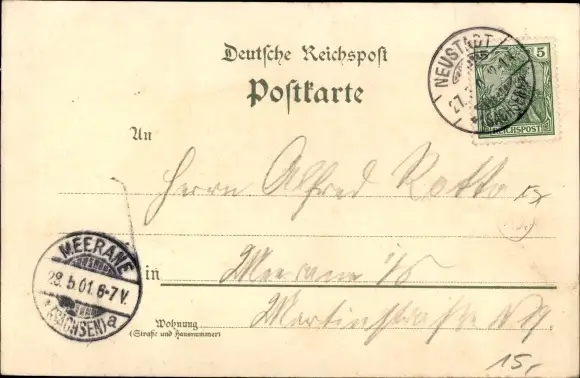 Deutsche Reichspost
Postkarte
NEUSTADT
(SACHSEN)
5
REICHSPOST
An
Herrn Alfred Rotto
MEERANE
28.5.01.6-7V.
(SACHSEN) a
in Meerane i/S
Wohnung Martinstraße
(Straße und Hausnummer)
15,-